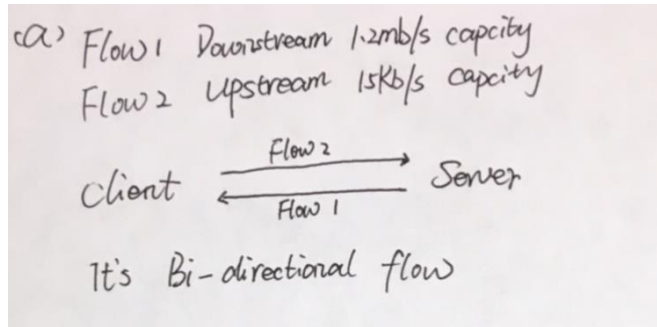 (a) Flow1 Downstream 1.2mb/s capcity
Flow2 Upstream 15Kb/s capcity
Flow2
Client Server
Flow 1
It's Bi-directional flow